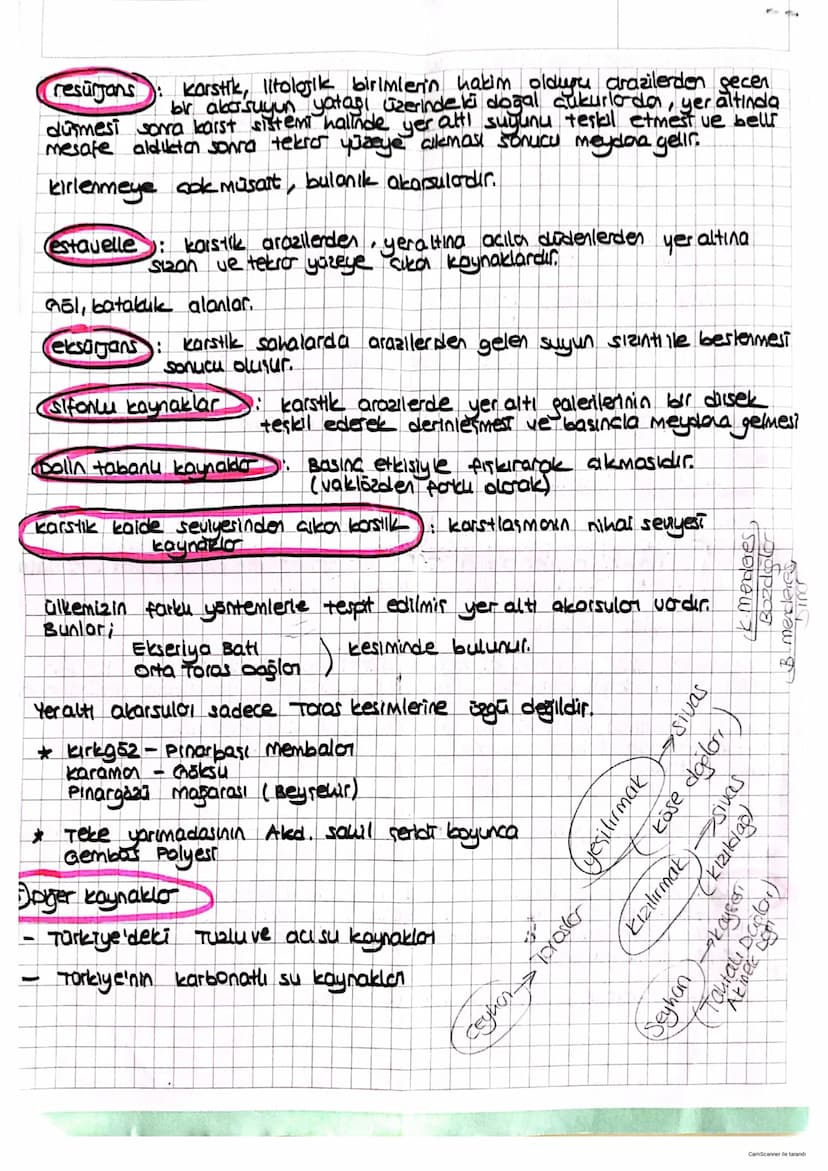 resürjans : karstik, litolojik birimlerin hakim olduğu arazilerden geçen
bir akarsuyun yatağı üzerindeki doğal çukurlardan, yer altında
düşmesi sonra karst sistemi halinde yer altı suyunu teşkil etmesi ve belli
mesafe aldıktan sonra tekrar yüzeye çıkması sonucu meydana gelir.
kirlenmeye çok müsait, bulanık akarsulardır.
estavelle : karstik arazilerden, yeraltına açılan düdenlerden yer altına
sızan ve tekrar yüzeye çıkan kaynaklardır.
Göl, bataklık alanlar.
eksürjans : karstik sahalarda arazilerden gelen suyun sızıntı ile beslenmesi
sonucu oluşur.
sifonlu kaynaklar : karstik arazilerde yer altı galerilerinin bir dirsek
teşkil ederek derinleşmesi ve basınçla meydana gelmesi
tabanlı kaynaklar : Basınç etkisiyle fışkırarak çıkmasıdır.
(voklüzden farklı olarak)
karstik kaide seviyesinden çıkan karstik : karstlaşmanın nihai seviyesi
kaynaklar
ülkemizin farklı yöntemlerle tespit edilmiş yer altı akarsuları vardır.
Bunlar;
Ekseriya Batı
Orta Toros Dağları ) kesiminde bulunur.
Yeraltı akarsuları sadece Toros kesimlerine özgü değildir.
* kırkgöz - Pınarbaşı membaları
karaman - Göksu
Pınargözü mağarası (Beyşehir)
* Teke yarımadasının Akd. sahil şeridi boyunca
Gembos Polyesi
Diğer kaynaklar
- Türkiye'deki Tuzlu ve acı su kaynakları
- Türkiye'nin karbonatlı su kaynakları
K. menderes
Bozdağlar
B. menderes
yeşilırmak → sivas
(köse dağları)
kızılırmak → sivas
(kızıldağ)
Seyhan → kayseri
(Tahtalı Dağları)
ceyhan → Toroslar
CamScanner ile tarandı